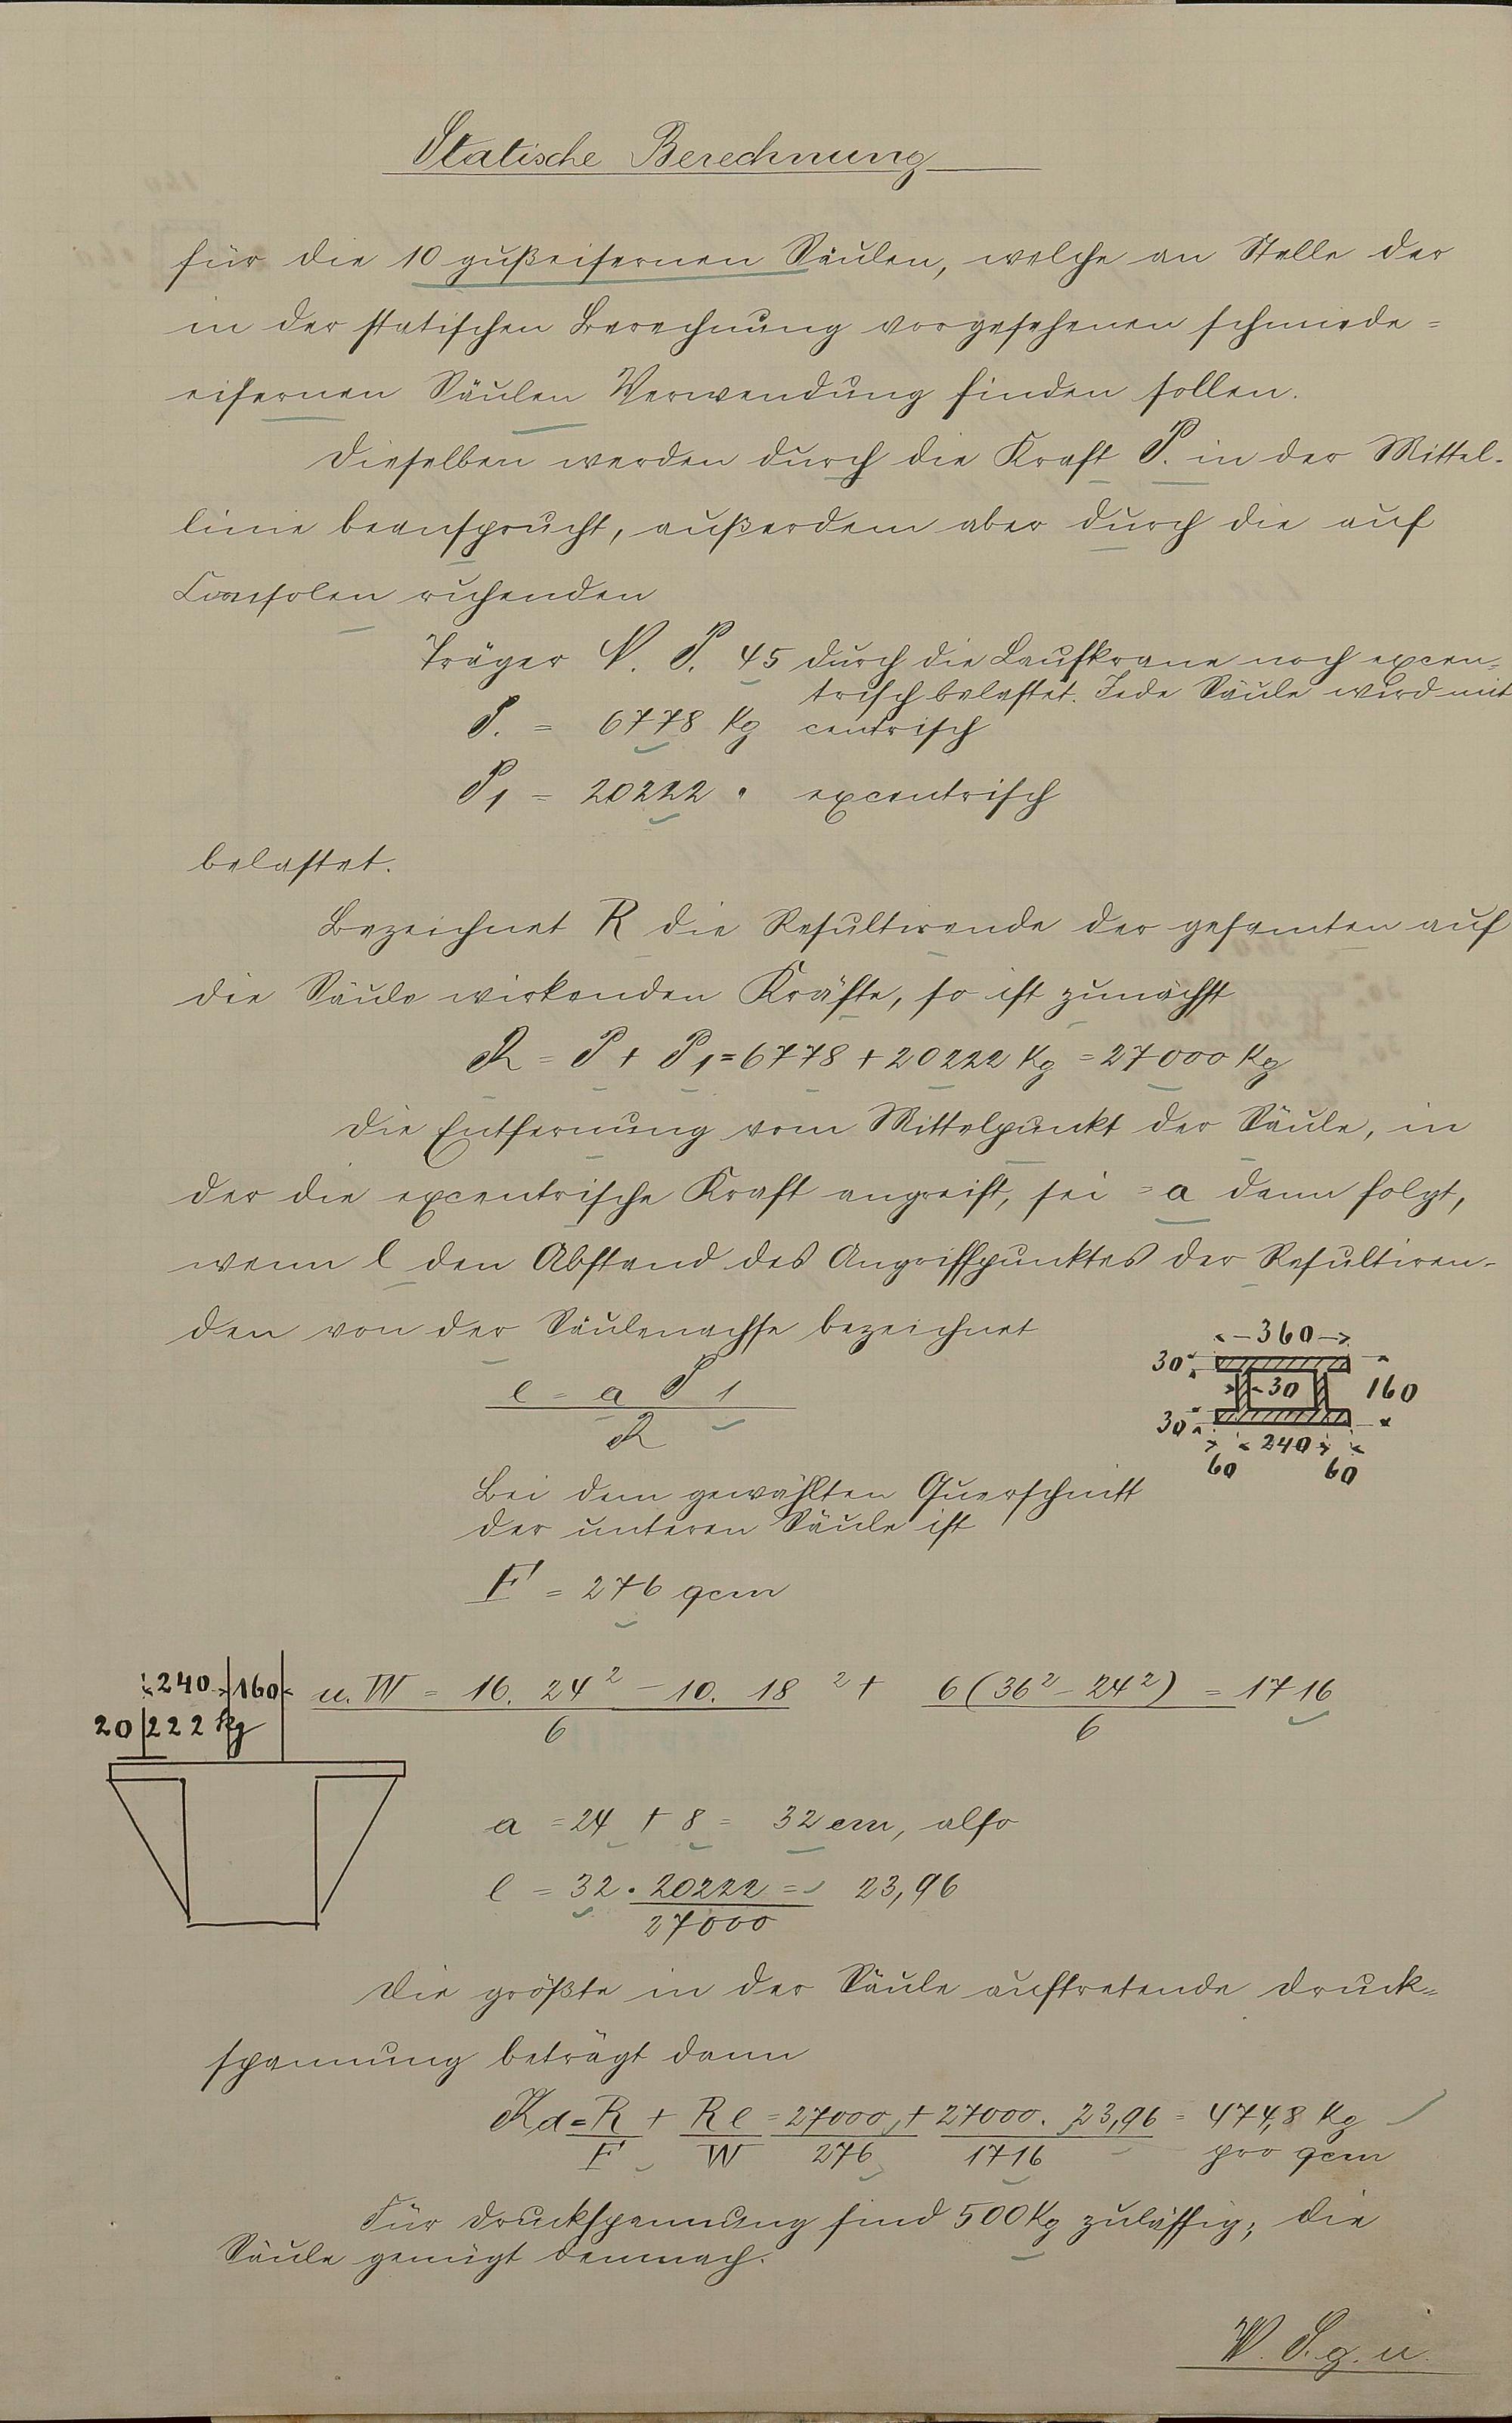 Statische Berechnung
für die 10 gußeisernen Säulen, welche an Stelle der
in der statischen Berechnung vorgesehenen schmiede=
eisernen Säulen Verwendung finden sollen.
Dieselben werden durch die Kraft P. in der Mittel-
linie beansprucht, außerdem aber durch die auf
Consolen ruhenden
Träger N. P. 45 durch die Laufkrane noch excen=
trisch belastet. Jede Säule wird mit
P. = 6778 Kg centrisch
P1 = 20222 " excentrisch
belastet.
Bezeichnet R die Resultirende der gesamten auf
die Säule wirkenden Kräfte, so ist zunächst
R = P + P1 = 6778 + 20222 Kg = 27000 Kg
Die Entfernung vom Mittelpunkt der Säule, in
der die excentrische Kraft angreift, sei = a dann folgt,
wenn l den Abstand des Angriffpunktes der Resultiren-
den von der Säulenachse bezeichnet
360
30
30
160
30
240
60 60
l = a P 1
R
Bei dem gewählten Querschnitt
der unteren Säule ist
F = 276 qcm
240 160
20 222 kg
u. W = 16. 24² - 10. 18² + 6 (36² - 24²) = 1716
6 6
a = 24 + 8 = 32 cm, also
l = 32 . 20222 = 23,96
27000
Die größte in der Säule auftretende Druck=
spannung beträgt dann
Kd = R + R l = 27000 + 27000. 23,96 = 474,8 Kg
F W 276 1716 pro qcm
Für Druckspannung sind 500 Kg zulässig; die
Säule genügt demnach.
W. S. g. u.